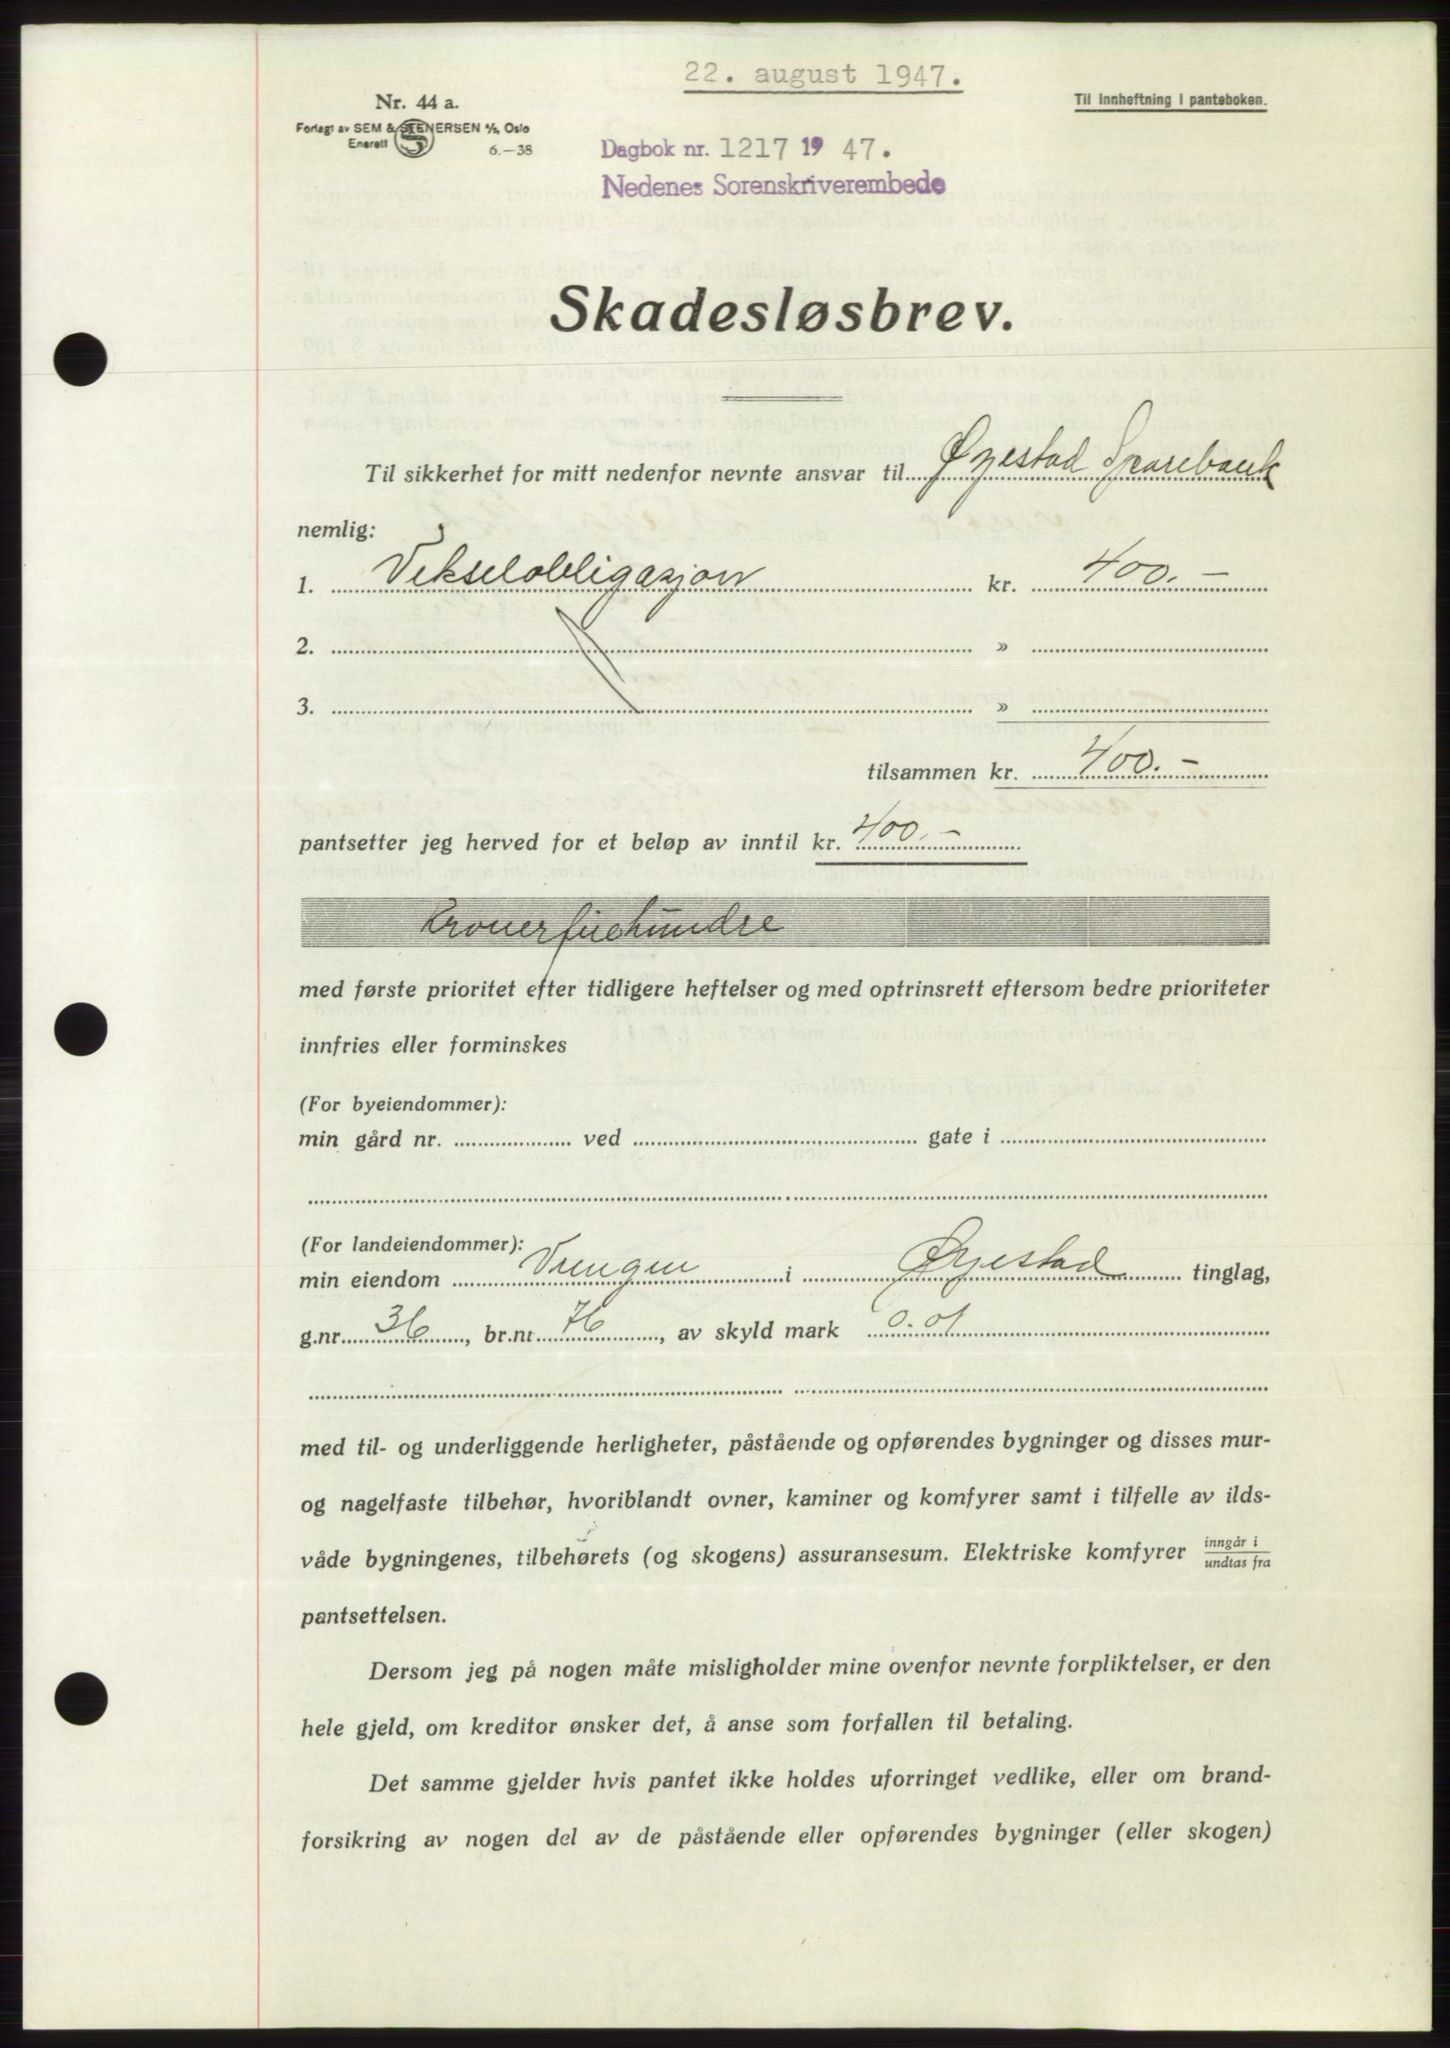 22. august 1947.
Nr. 44 a.
Til innheftning i panteboken.
Forlagt av SEM & STENERSEN A/S, Oslo
Enerett
6.—38
Dagbok nr. 1217 1947.
Nedenes Sorenskriverembede
Skadesløsbrev.
Til sikkerhet for mitt nedenfor nevnte ansvar til Øyestad Sparebank
nemlig:
1. Vekselobligasjon kr. 400.-
2. »
3. »
tilsammen kr. 400.-
pantsetter jeg herved for et beløp av inntil kr. 400.-
Kroner firehundre
med første prioritet efter tidligere heftelser og med optrinsrett eftersom bedre prioriteter
innfries eller forminskes
(For byeiendommer):
min gård nr. ved gate i
(For landeiendommer):
min eiendom i Øyestad tinglag,
g.nr. 36, br.nr. 76, av skyld mark 0.01
med til- og underliggende herligheter, påstående og opførendes bygninger og disses mur-
og nagelfaste tilbehør, hvoriblandt ovner, kaminer og komfyrer samt i tilfelle av ilds-
våde bygningenes, tilbehørets (og skogens) assuransesum. Elektriske komfyrer inngår i
undtas fra
pantsettelsen.
Dersom jeg på nogen måte misligholder mine ovenfor nevnte forpliktelser, er den
hele gjeld, om kreditor ønsker det, å anse som forfallen til betaling.
Det samme gjelder hvis pantet ikke holdes uforringet vedlike, eller om brand-
forsikring av nogen del av de påstående eller opførendes bygninger (eller skogen)